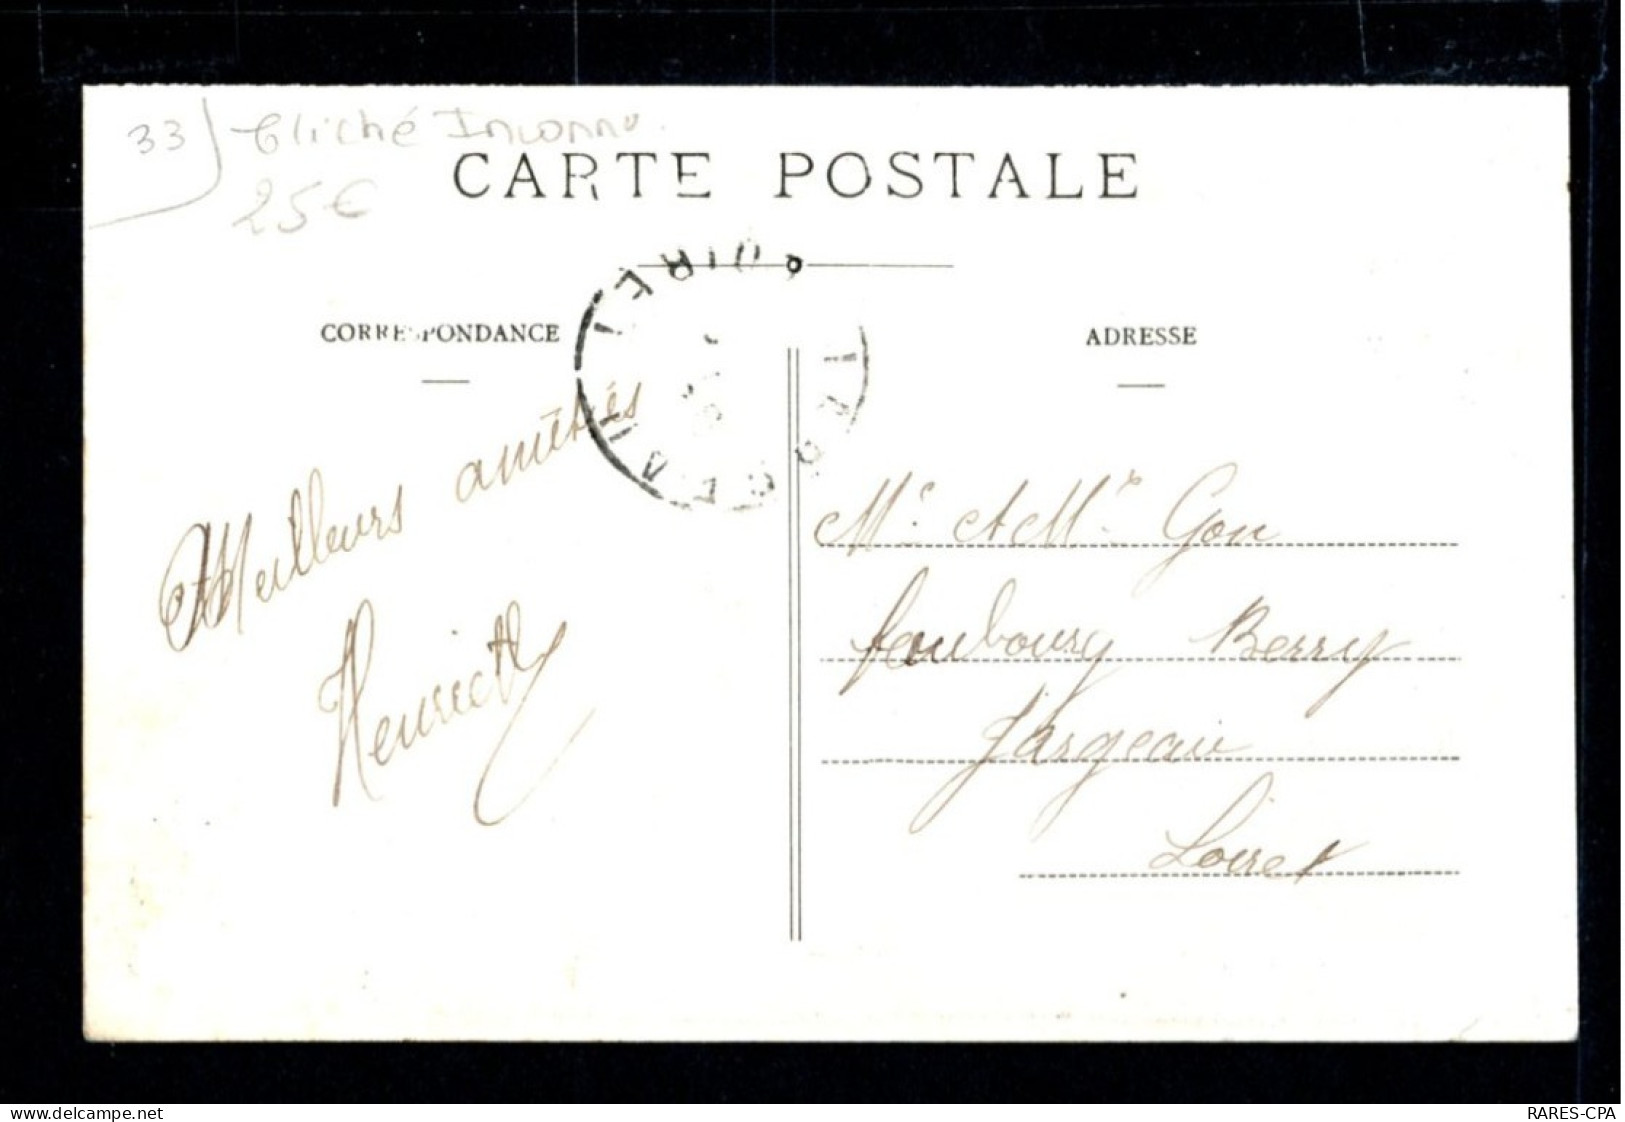 33 Cliché Inconnu
25€
CARTE POSTALE
CORRESPONDANCE
ADRESSE
Meilleurs amitiés
Henriette
Mr et Me Gou
faubourg Berry
Jargeau
Loiret
www.delcampe.net
RARES-CPA